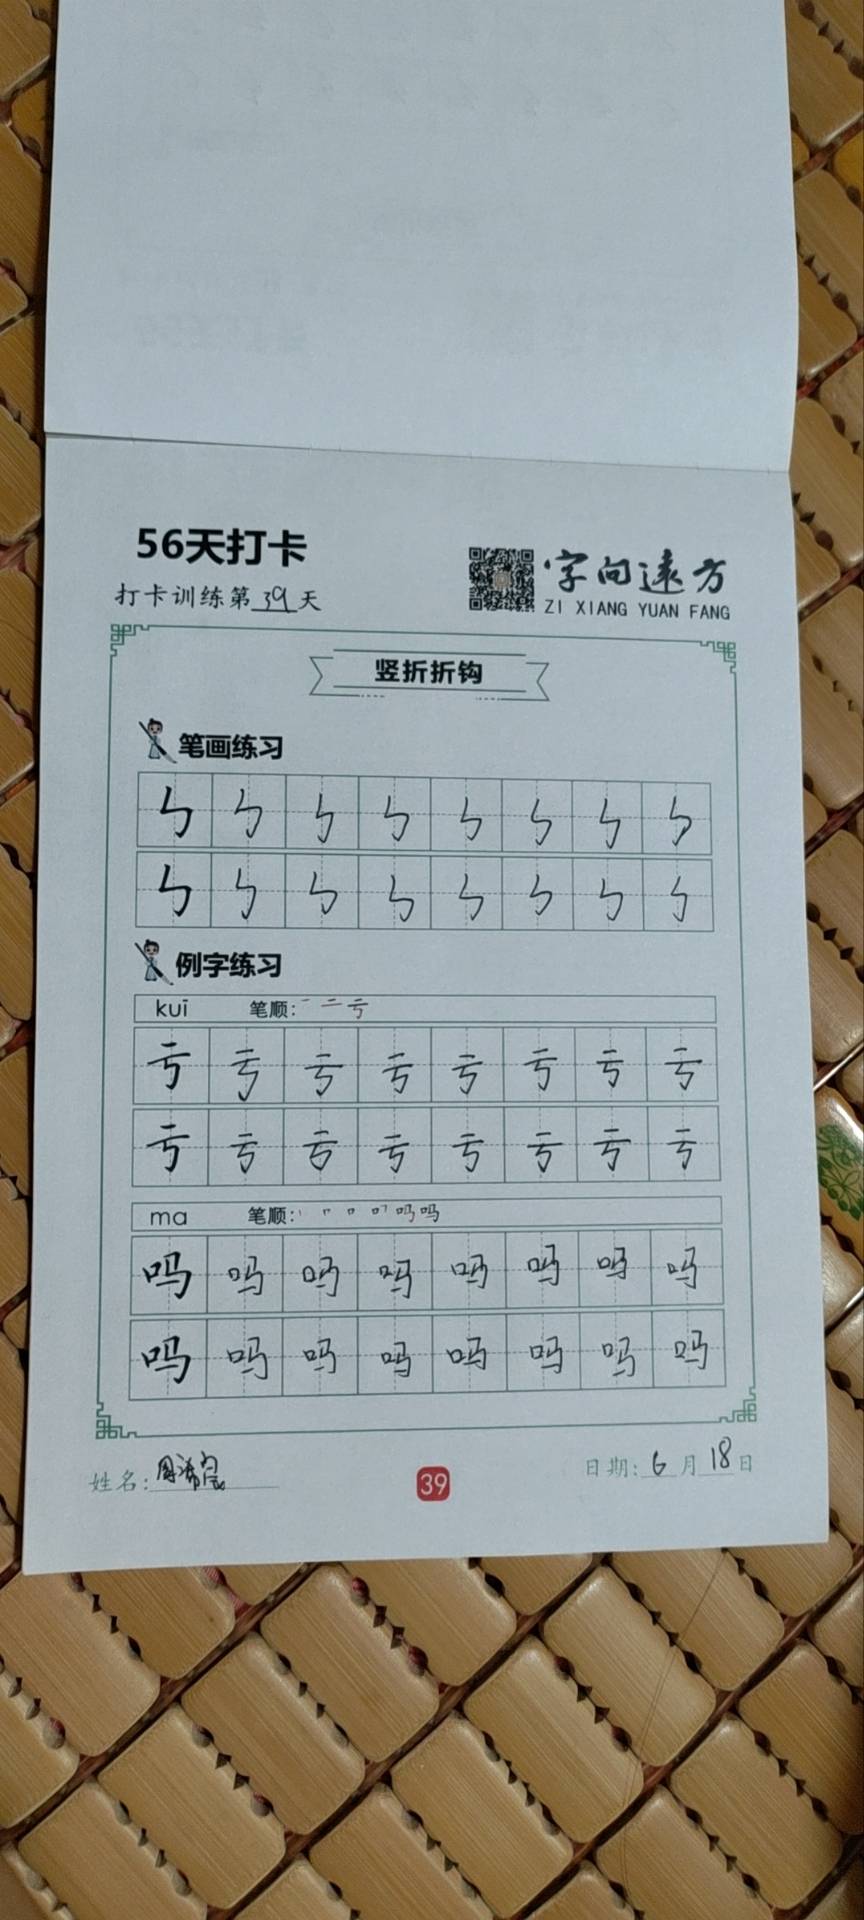 56天打卡
打卡训练第39天
字向远方
ZI XIANG YUAN FANG
竖折折钩
笔画练习
ㄣ ㄣ ㄣ ㄣ ㄣ ㄣ ㄣ ㄣ
ㄣ ㄣ ㄣ ㄣ ㄣ ㄣ ㄣ ㄣ
例字练习
kuī 笔顺: 一 二 亏
亏 亏 亏 亏 亏 亏 亏 亏
亏 亏 亏 亏 亏 亏 亏 亏
ma 笔顺:
吗 吗 吗 吗 吗 吗 吗 吗
吗 吗 吗 吗 吗 吗 吗 吗
姓名:周
39
日期:6月18日